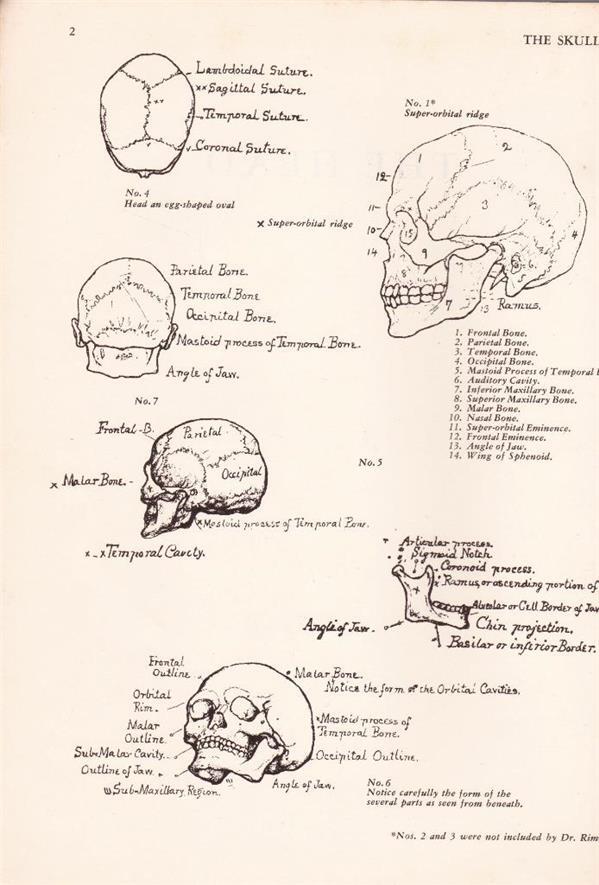 2
THE SKULL
Lambdoidal Suture.
×× Sagittal Suture.
Temporal Suture.
Coronal Suture.
No. 4
Head an egg-shaped oval
× Super-orbital ridge
No. 1*
Super-orbital ridge
1
2
3
4
5
6.
7
8
9
10
11
12
13
14
15
Ramus.
1. Frontal Bone.
2. Parietal Bone.
3. Temporal Bone.
4. Occipital Bone.
5. Mastoid Process of Temporal
6. Auditory Cavity.
7. Inferior Maxillary Bone.
8. Superior Maxillary Bone.
9. Malar Bone.
10. Nasal Bone.
11. Super-orbital Eminence.
12. Frontal Eminence.
13. Angle of Jaw.
14. Wing of Sphenoid.
Parietal Bone.
Temporal Bone
Occipital Bone.
Mastoid process of Temporal Bone.
Angle of Jaw.
No. 7
Frontal-B.
Parietal
Occipital
× Malar Bone.
× Mastoid process of Temporal Bone.
×-× Temporal Cavety.
No. 5
Articular process.
Sigmoid Notch
Coronoid process.
Ramus, or ascending portion of
Alveolar or Cell Border of Jaw
Angle of Jaw.
Chin projection.
Basilar or inferior Border.
Frontal
Outline
Orbital
Rim.
Malar
Outline.
Sub-Malar-Cavity.
Outline of Jaw.
Sub-Maxillary Region.
Malar Bone.
Notice the form of the Orbital Cavities.
Mastoid process of
Temporal Bone.
Occipital Outline.
Angle of Jaw.
No. 6
Notice carefully the form of the
several parts as seen from beneath.
*Nos. 2 and 3 were not included by Dr. Rim